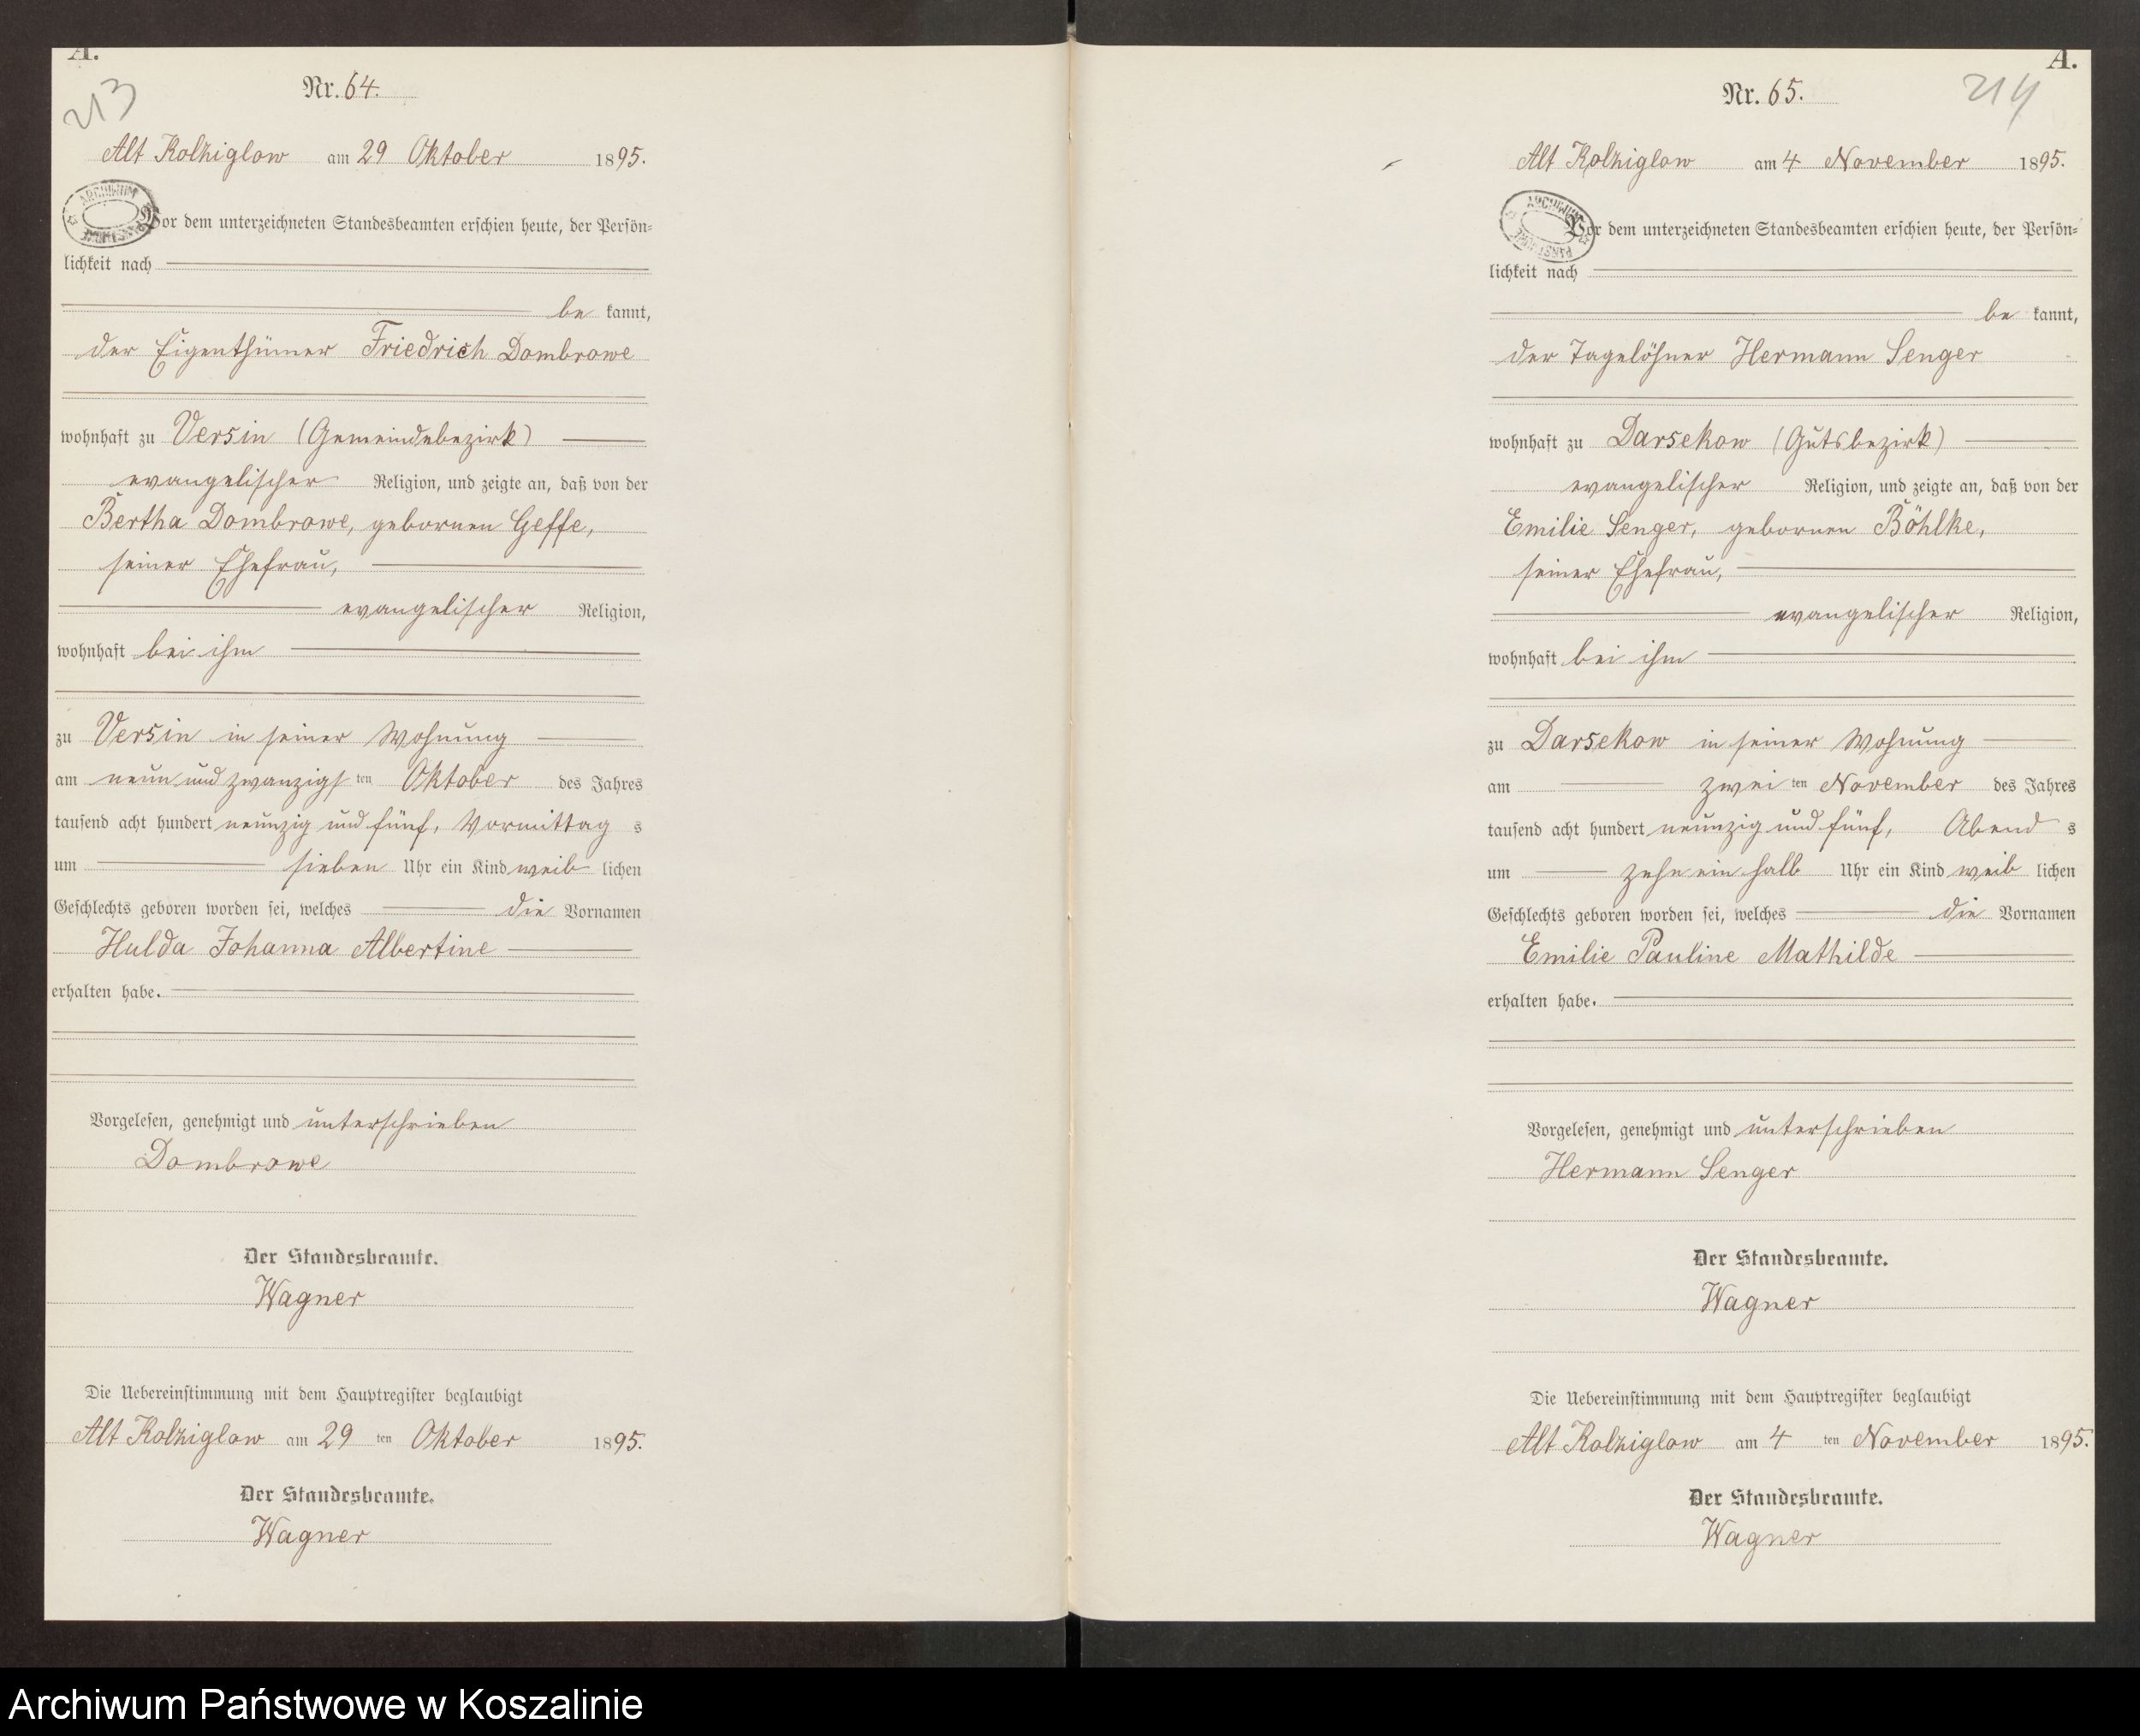 A.
213
Nr. 64.
Alt Kolziglow am 29 Oktober 1895.
Vor dem unterzeichneten Standesbeamten erschien heute, der Persön-
lichkeit nach
be kannt,
der Eigenthümer Friedrich Dombrowe
wohnhaft zu Versin (Gemeindebezirk)
evangelischer Religion, und zeigte an, daß von der
Bertha Dombrowe, gebornen Geffe,
seiner Ehefrau,
evangelischer Religion,
wohnhaft bei ihm
zu Versin in seiner Wohnung
am neun und zwanzigsten Oktober des Jahres
tausend acht hundert neunzig und fünf, Vormittag s
um sieben Uhr ein Kind weib lichen
Geschlechts geboren worden sei, welches die Vornamen
Hulda Johanna Albertine
erhalten habe.
Vorgelesen, genehmigt und unterschrieben
Dombrowe
Der Standesbeamte.
Wagner
Die Uebereinstimmung mit dem Hauptregister beglaubigt
Alt Kolziglow am 29 ten Oktober 1895.
Der Standesbeamte.
Wagner
A.
214
Nr. 65.
Alt Kolziglow am 4 November 1895.
ARCHIWUM
Vor dem unterzeichneten Standesbeamten erschien heute, der Persön-
lichkeit nach
be kannt,
der Tagelöhner Hermann Senger
wohnhaft zu Darsekow (Gutsbezirk)
evangelischer Religion, und zeigte an, daß von der
Emilie Senger, gebornen Böhlke,
seiner Ehefrau,
evangelischer Religion,
wohnhaft bei ihm
zu Darsekow in seiner Wohnung
am zwei ten November des Jahres
tausend acht hundert neunzig und fünf, Abend s
um zehn ein halb Uhr ein Kind weib lichen
Geschlechts geboren worden sei, welches die Vornamen
Emilie Pauline Mathilde
erhalten habe.
Vorgelesen, genehmigt und unterschrieben
Hermann Senger
Der Standesbeamte.
Wagner
Die Uebereinstimmung mit dem Hauptregister beglaubigt
Alt Kolziglow am 4 ten November 1895.
Der Standesbeamte.
Wagner
Archiwum Państwowe w Koszalinie